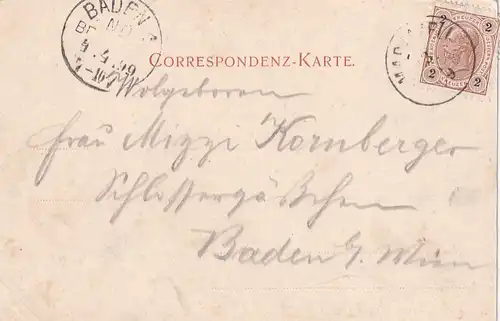 BADEN
4.4.99
CORRESPONDENZ-KARTE.
2 KREUZER 2
2 2
Wolgeboren
Frau Mizzi Kornberger
Schlossergäßchen
Baden b/ Wien